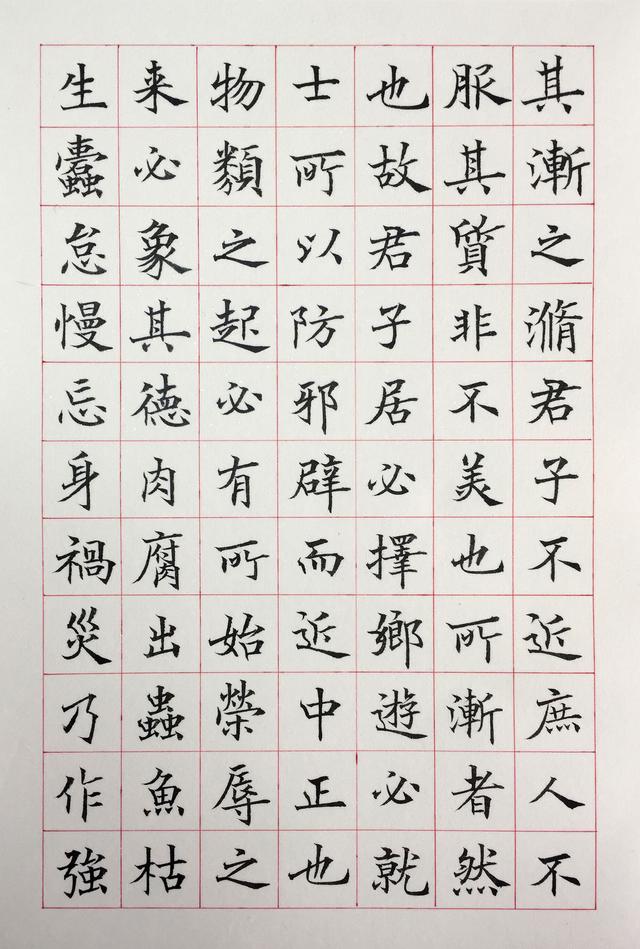 其漸之滫君子不近庶人不
服其質非不美也所漸者然
也故君子居必擇鄉遊必就
士所以防邪辟而近中正也
物類之起必有所始榮辱之
来必象其德肉腐出蟲魚枯
生蠹怠慢忘身禍災乃作強